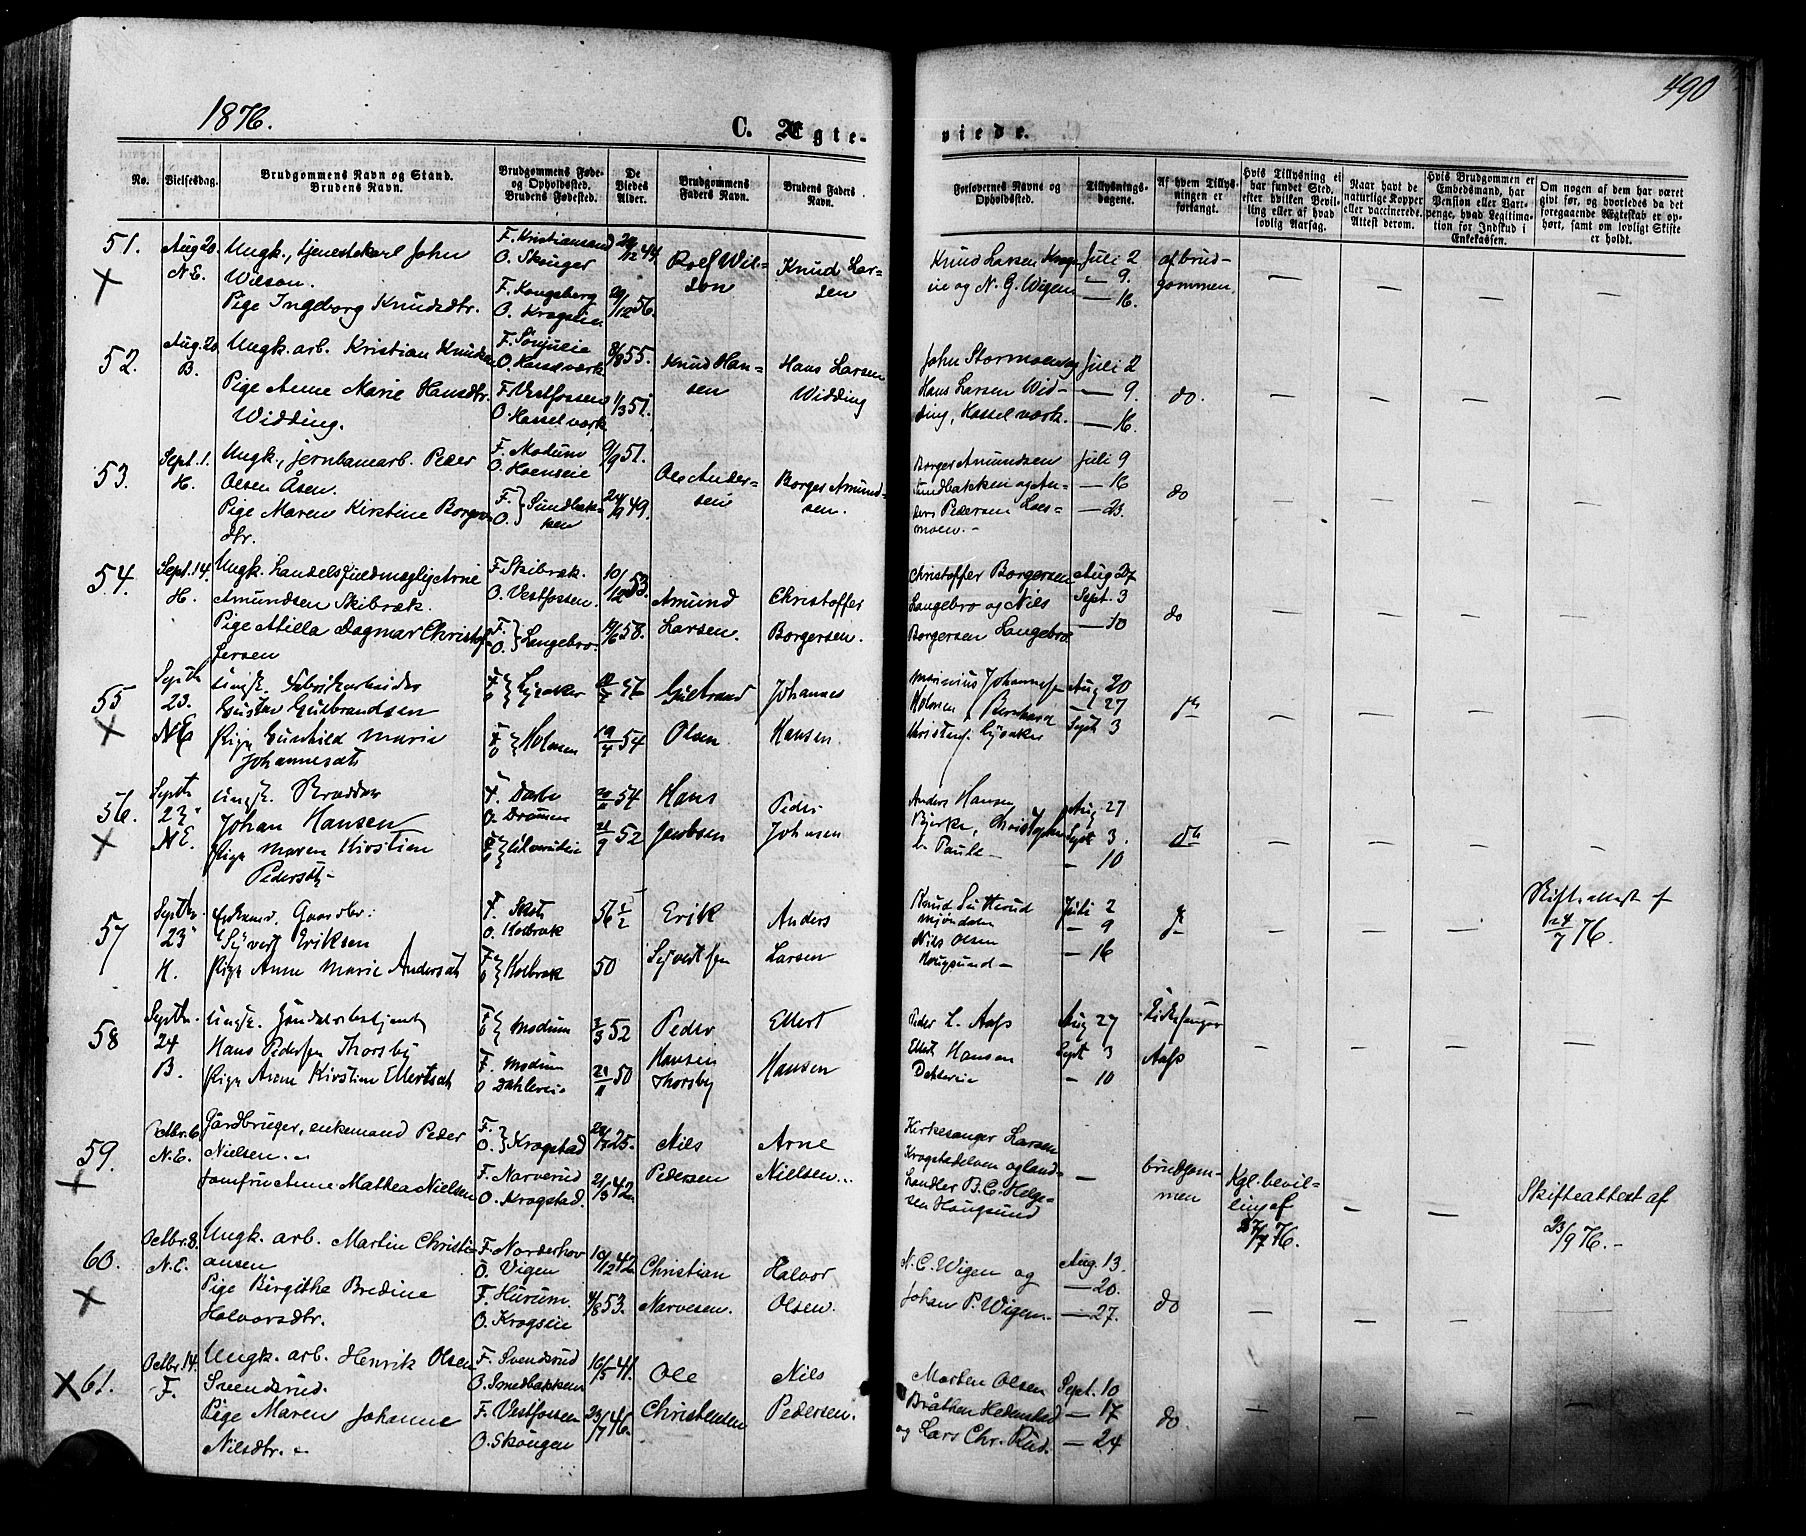 1876.
C. Ægte-
viede.
490
No.
Vielsesdag.
Brudgommens Navn og Stand.
Brudens Navn.
Brudgommens Føde-
og Opholdssted.
Brudens Fødested.
De
Viedes
Alder.
Brudgommens
Faders Navn.
Brudens Faders
Navn.
Forlovernes Navne og
Opholdssted.
Tillysnings-
dagene.
Af hvem Tillys-
ningen er
forlangt.
Hvis Tillysning ei
har fundet Sted,
efter hvilken Bevil-
ling eller af hvad
lovlig Aarsag.
Naar havt de
naturlige Kopper
eller vaccinerede.
Attest derom.
Hvis Brudgommen er
Embedsmand, har
Pension eller Vart-
penge, hvad Legitima-
tion for Indskud i
Enkekassen.
Om nogen af dem har været
gift før, og hvorledes da det
foregaaende Ægteskab er op-
hørt, samt om lovligt Skifte
er holdt.
51.
Aug 20
N.E.
Ungk., tjenestekarl John
Wilson.
Pige Ingeborg Knudsdtr.
F. Kristiansand
O. Skouger
F. Kongsberg
O. Krogseie
29/12 56.
Rolf Wil-
son
Knud Lar-
sen
Knud Larsen Krogs-
eie og N. G. Wigen
Juli 2
— 9.
— 16.
af brud-
gommen.
52.
Aug. 20
B.
Ungk. arb. Kristian Knudsen
Pige Anne Marie Hansdtr.
Widding.
O. Hassel værk
F. Vestfossen
O. Hassel værk
8/8 55.
11/3 51.
Knud Han-
sen
Hans Larsen
Widding
John Stormoen og
Hans Larsen Wid-
ding, Hassel værk.
Juli 2
— 9.
— 16.
do.
53.
Sept. 1.
H.
Ungk., jernbanearb. Peder
Olsen Åsen.
Pige Maren Kirstine Borger-
dtr.
F. Modum
O. Hoenseie
F. O. } Sundbak-
ken
9/9 51.
49.
Ole Ander-
sen
Borger Amund-
sen.
Borger Amundsen
Sundbakken og An-
ders Pedersen Loes-
moen.-
Juli 9
— 16
— 23.
do
54.
Sept. 14.
H.
Ungk. Handelsfuldmægtig Arne
Amundsen Skibræk.
Pige Atilla Dagmar Christof-
fersen
F. Skibræk.
O. Vestfossen.
F. O. } Langebro.
10/12 53.
58.
Amund
Larsen.
Christoffer
Borgersen.
Christoffer Borgersen
Langebro og Nils
Borgersen Langebro.
Aug 27
Sept. 3
— 10
do
55
Septb
23.
NE
Ungk. Fabrikarbeider
Gustav Gulbrandsen
Pige Gunhild Marie
Johannesdt
F. O. } Lysaker
F. O. } Holmen
19/4 54
Gulbrand
Olsen
Johannes
Hansen.
Marinius Johannesen
Holmen, Bernhard
Christens. Lysaker
Aug 20
— 27
Sept 3
56.
Septb
23
NE.
Ungk.
Johan Hansen
Pige Maren Kirstine
Pedersdt
O. Drammen
54
52
Hans
Jacobsen
Peder
Johnsen
Anders Hansen
Bjerke, Christopher
Aug 27
Sept 3.
— 10
57
Septb
23
H.
Enkemd. Gaardbr:
Syvert Eriksen
Pige Anne Marie Andersdt
O. Kolbræk
F. O. } Kolbræk
56 1/2
50
Erik
Syvertsen
Anders
Larsen
Knud
Mjøndalen
Nils Olsen
Hougsund —
Juli 2
— 9
— 16
Skifteattest af
24/7 76.
58
Septbr.
24
B.
Ungk.
Hans Pedersen Thorsby
Pige Anne Kirstine Ellertsdt
F. O. } Modum
F. Modum
O. Dahlereie
52
50
Peder
Hansen
Thorsby
Ellert
Hansen
Peder L. Aass
Ellert Hansen
Aug 27
Sept 3
— 10
Kirkesanger
Aass
59.
Octbr. 6.
N.E.
Gårdbruger, enkemand Peder
Nielsen. -
Jomfru Anne Mathea Nielsen
F. O. } Krogstad
F. Narverud
O. Krogstad.
25.
21/3 42.
Nils
Pedersen
Arne
Nielsen..
Kirkesanger Larsen
Krogstadelven og land-
handler B. C. Helge-
sen Hougsund
brudgom-
men
Kgl. bevil-
ling af
76.
Skifteattest af
23/9 76.-
60.
Octbr. 8.
N.E.
Ungk. arb. Martin Christi-
ansen
Pige Birgithe Bredine
Halvorsdtr.
F. Norderhov
O. Vigen
F. Hurum.
O. Krogseie
10/12 42.
4/8 53.
Christian
Narvesen.
Halvor
Olsen.
N. C. Wigen og
Johan P. Wigen.
Aug. 13.
— 20.
— 27.
do
61.
Octbr. 14.
F.
Ungk. arb. Henrik Olsen
Svendsrud.
Pige Maren Johanne
Nilsdtr. -
F. Svendsrud
O. Smedbakken
F. Vestfossen
O. Skougen
16/5 41.
23/7 46.
Ole
Christensen
Nils
Pedersen.
Morten Olsen
Bråthen Hedenstad
og Lars Chr. Rud.
Sept. 10
— 17
— 24
do